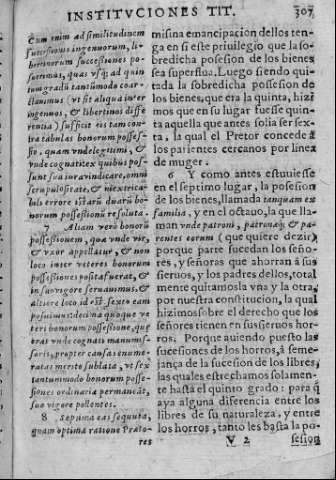 INSTITVCIONES TIT.
307
Cum enim ad similitudinem
successionis ingenuorum, li-
bertinorum successiones po-
suerimus, quas vsq; ad quin
tum gradũ tantũmodo coar-
ctauimus (vt sit aliqua inter
ingenuos, & libertinos diffe
rentia) sufficit eis tam con-
tra tabulas bonorum posses-
sio, quam vnde legitimi, &
vnde cognati: ex quibus pos-
sunt sua iura vindicare, omni
scrupulositate, & inextrica-
bili errore istarũ duarũ bo-
norum possessionũ resoluta.
7 Aliam verò bonorũ
possessionem, quæ vnde vir,
& vxor appellatur, & non
loco inter veteres bonorum
possessiones posita fuerat, &
in suo vigore seruauimus, &
altiore loco, id est, sexto eam
posuimus: decima quoque ve
teri bonorum possessione, quę
erat vnde cognati manumis-
soris, propter causas enume-
ratas merito sublata, vt sex
tantummodo bonorum posse-
siones ordinariæ permaneãt,
suo vigore pollentes.
8 Septima eas sequuta,
quam optima ratione Præto-
res
misma emancipacion dellos ten-
ga en si este priuilegio que la so-
bredicha posesion de los bienes
sea superflua. Luego siendo qui-
tada la sobredicha possession de
los bienes, que era la quinta, hizi
mos que en su lugar fuesse quin-
ta aquella que antes solia ser sex-
ta, la qual el Pretor concede à
los parientes cercanos por linea
de muger.
6 Y como antes estuuiesse
en el septimo lugar, la posesion
de los bienes, llamada tanquam ex
familia, y en el octauo, la que lla-
man vnde patroni, patronæq; & pa-
rentes eorum (que quiere dezir,
porque parte sucedan los seño-
res, y señoras que ahorran à sus
sieruos, y los padres dellos, total
mente quitamosla vna y la otra,
por nuestra constitucion, la qual
hizimos sobre el derecho que los
señores tienen en sus sieruos hor-
ros. Porque auiendo puesto las
sucesiones de los horros, à seme-
jança de la sucesion de los libres,
las quales estrechamos solamen-
te hasta el quinto grado: para q̃
aya alguna diferencia entre los
libres de su naturaleza, y entre
los horros, tanto les basta la po-
V 2
sesion